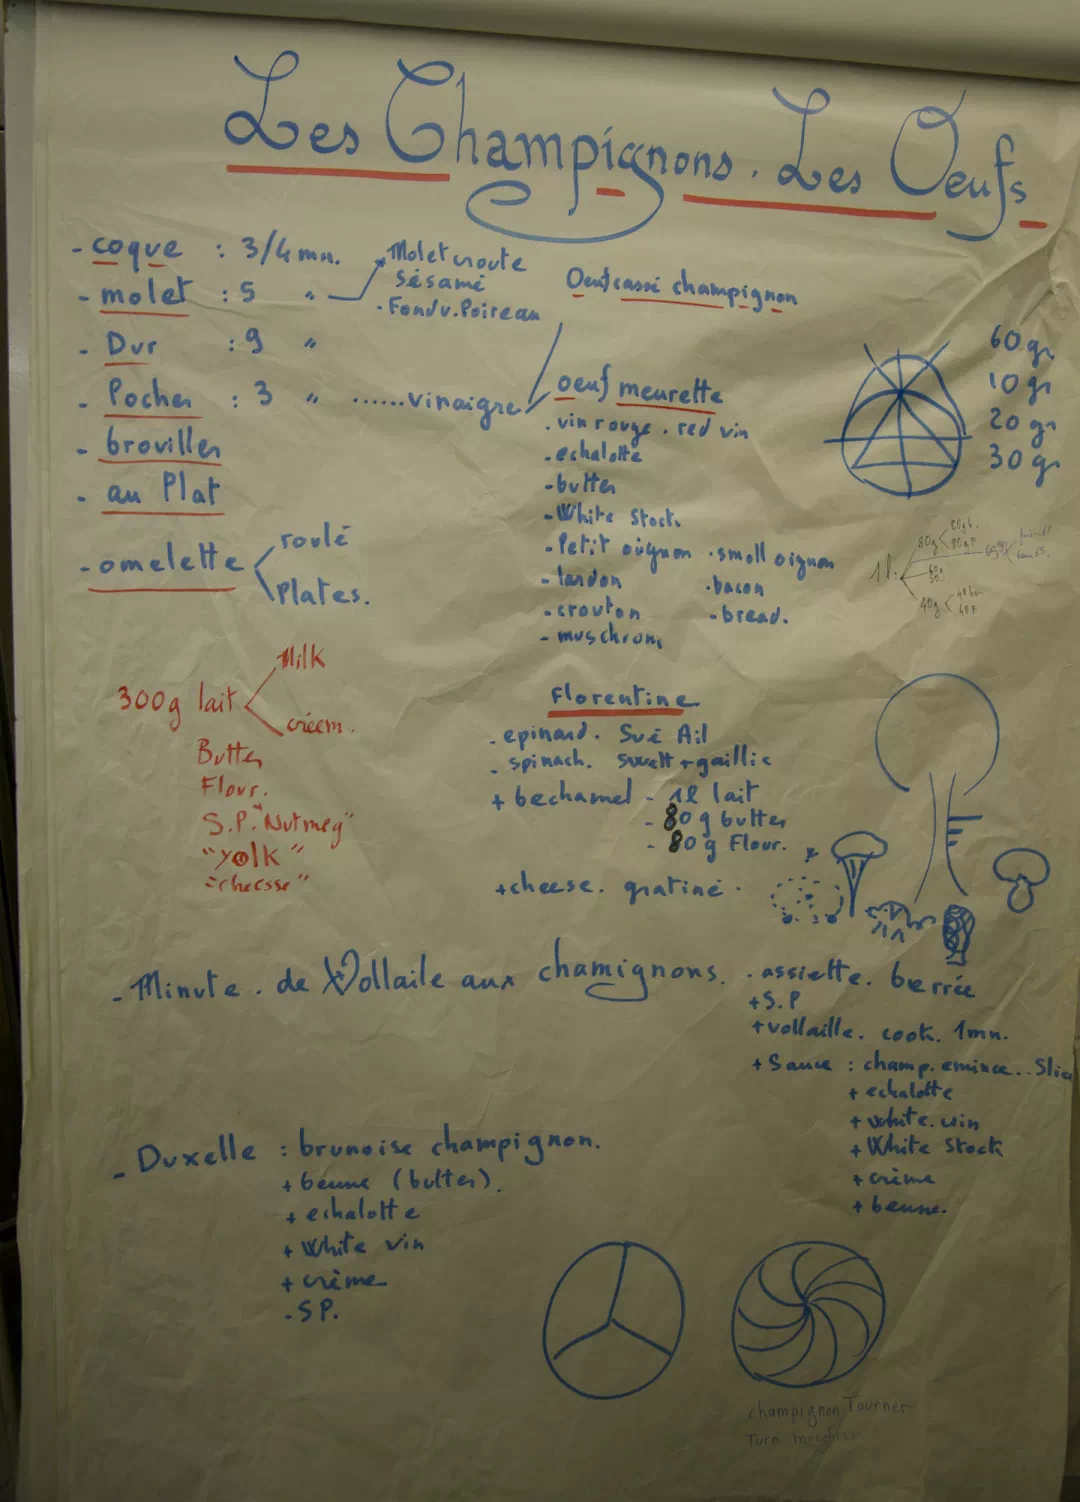 Les Champignons . Les Oeufs
- coque : 3/4 mn.
- molet : 5 "
Molet croute
sésamé
- Fondu. Poireau
- Dur : 9 "
- Pocher : 3 " ...... vinaigre
- brouiller
- au Plat
- omelette
roulé
Plates.
Oeuf cassé champignon
oeuf meurette
. vin rouge . red vin
. echalotte
- butter
- White Stock
- Petit oignon . small oignon
- lardon . bacon
- crouton . bread.
- muschrom
60 gr
10 gr
20 gr
30 gr
1l :
80g
40g
300g lait
Milk
créem.
Butter
Flour.
S.P. "Nutmeg"
"yolk"
"cheesse"
Florentine
. epinard. Sué Ail
. spinach. swett + gaillic
+ bechamel - 1l lait
- 80 g butter
- 80 g Flour.
+ cheese. gratiné .
- Minute . de Vollaile aux chamignons.
. assiette. berrée
+ S.P
+ vollaille. cook. 1mn.
+ Sauce : champ. emince.. Slice
+ echalotte
+ white. vin
+ White Stock
+ crème
+ beurre.
- Duxelle : brunoise champignon.
+ beurre (butter).
+ echalotte
+ White vin
+ crème
. S P.
champignon Tourner
Turn